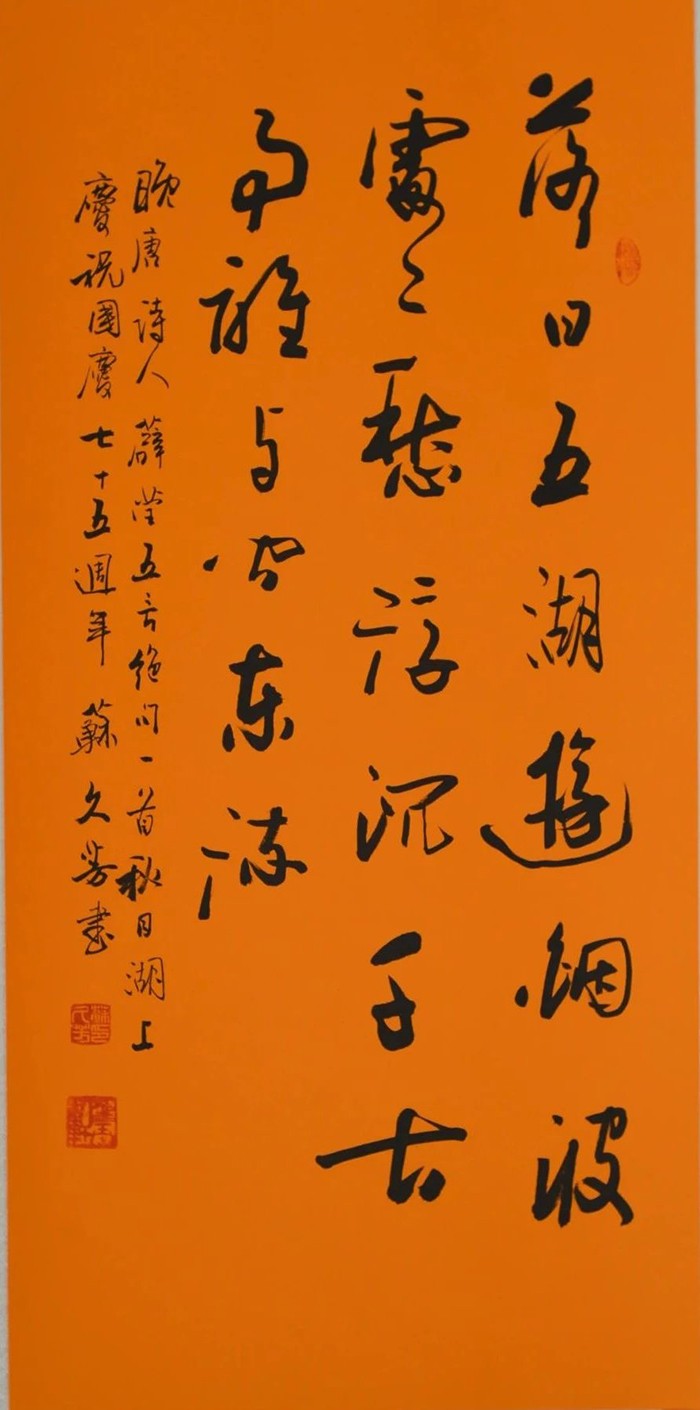 落日五湖遊烟波
處〻愁浮沉千古
事誰与问东流
晚唐诗人薛莹五言绝句一首秋日湖上
慶祝國慶七十五週年蘇久芳書